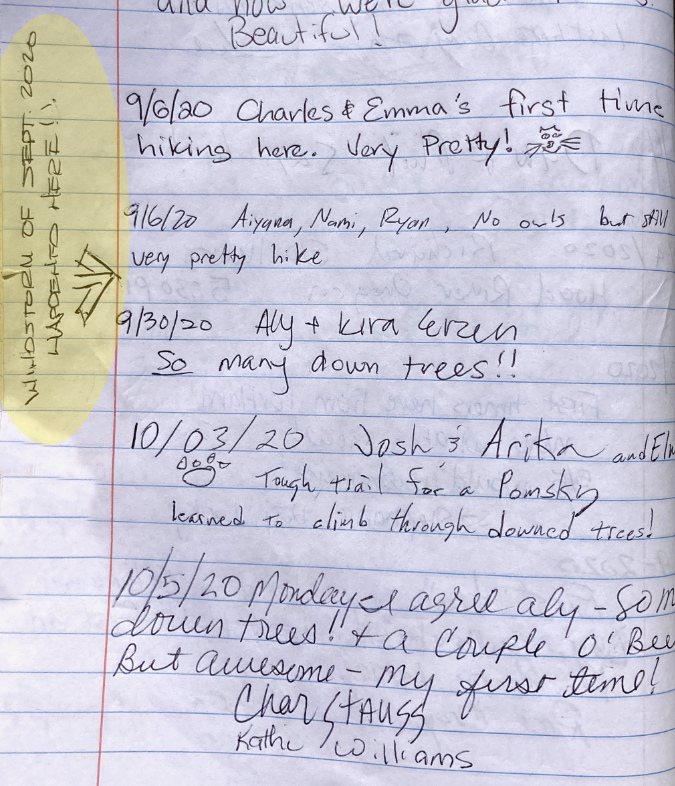 and now we're
Beautiful!
WINDSTORM OF SEPT. 2020
HAPPENED HERE!
9/6/20 Charles & Emma's first time
hiking here. Very Pretty!
9/6/20 Aiyana, Nami, Ryan, No owls but still
very pretty hike
9/30/20 Aly + Kira Erzen
So many down trees!!
10/03/20 Josh & Arika and
Tough trail for a Pomsky
learned to climb through downed trees!
10/5/20 Monday - I agree aly - So
down trees!! + a Couple o'
But awesome - my first time!
Char Stauss
Kathi Williams